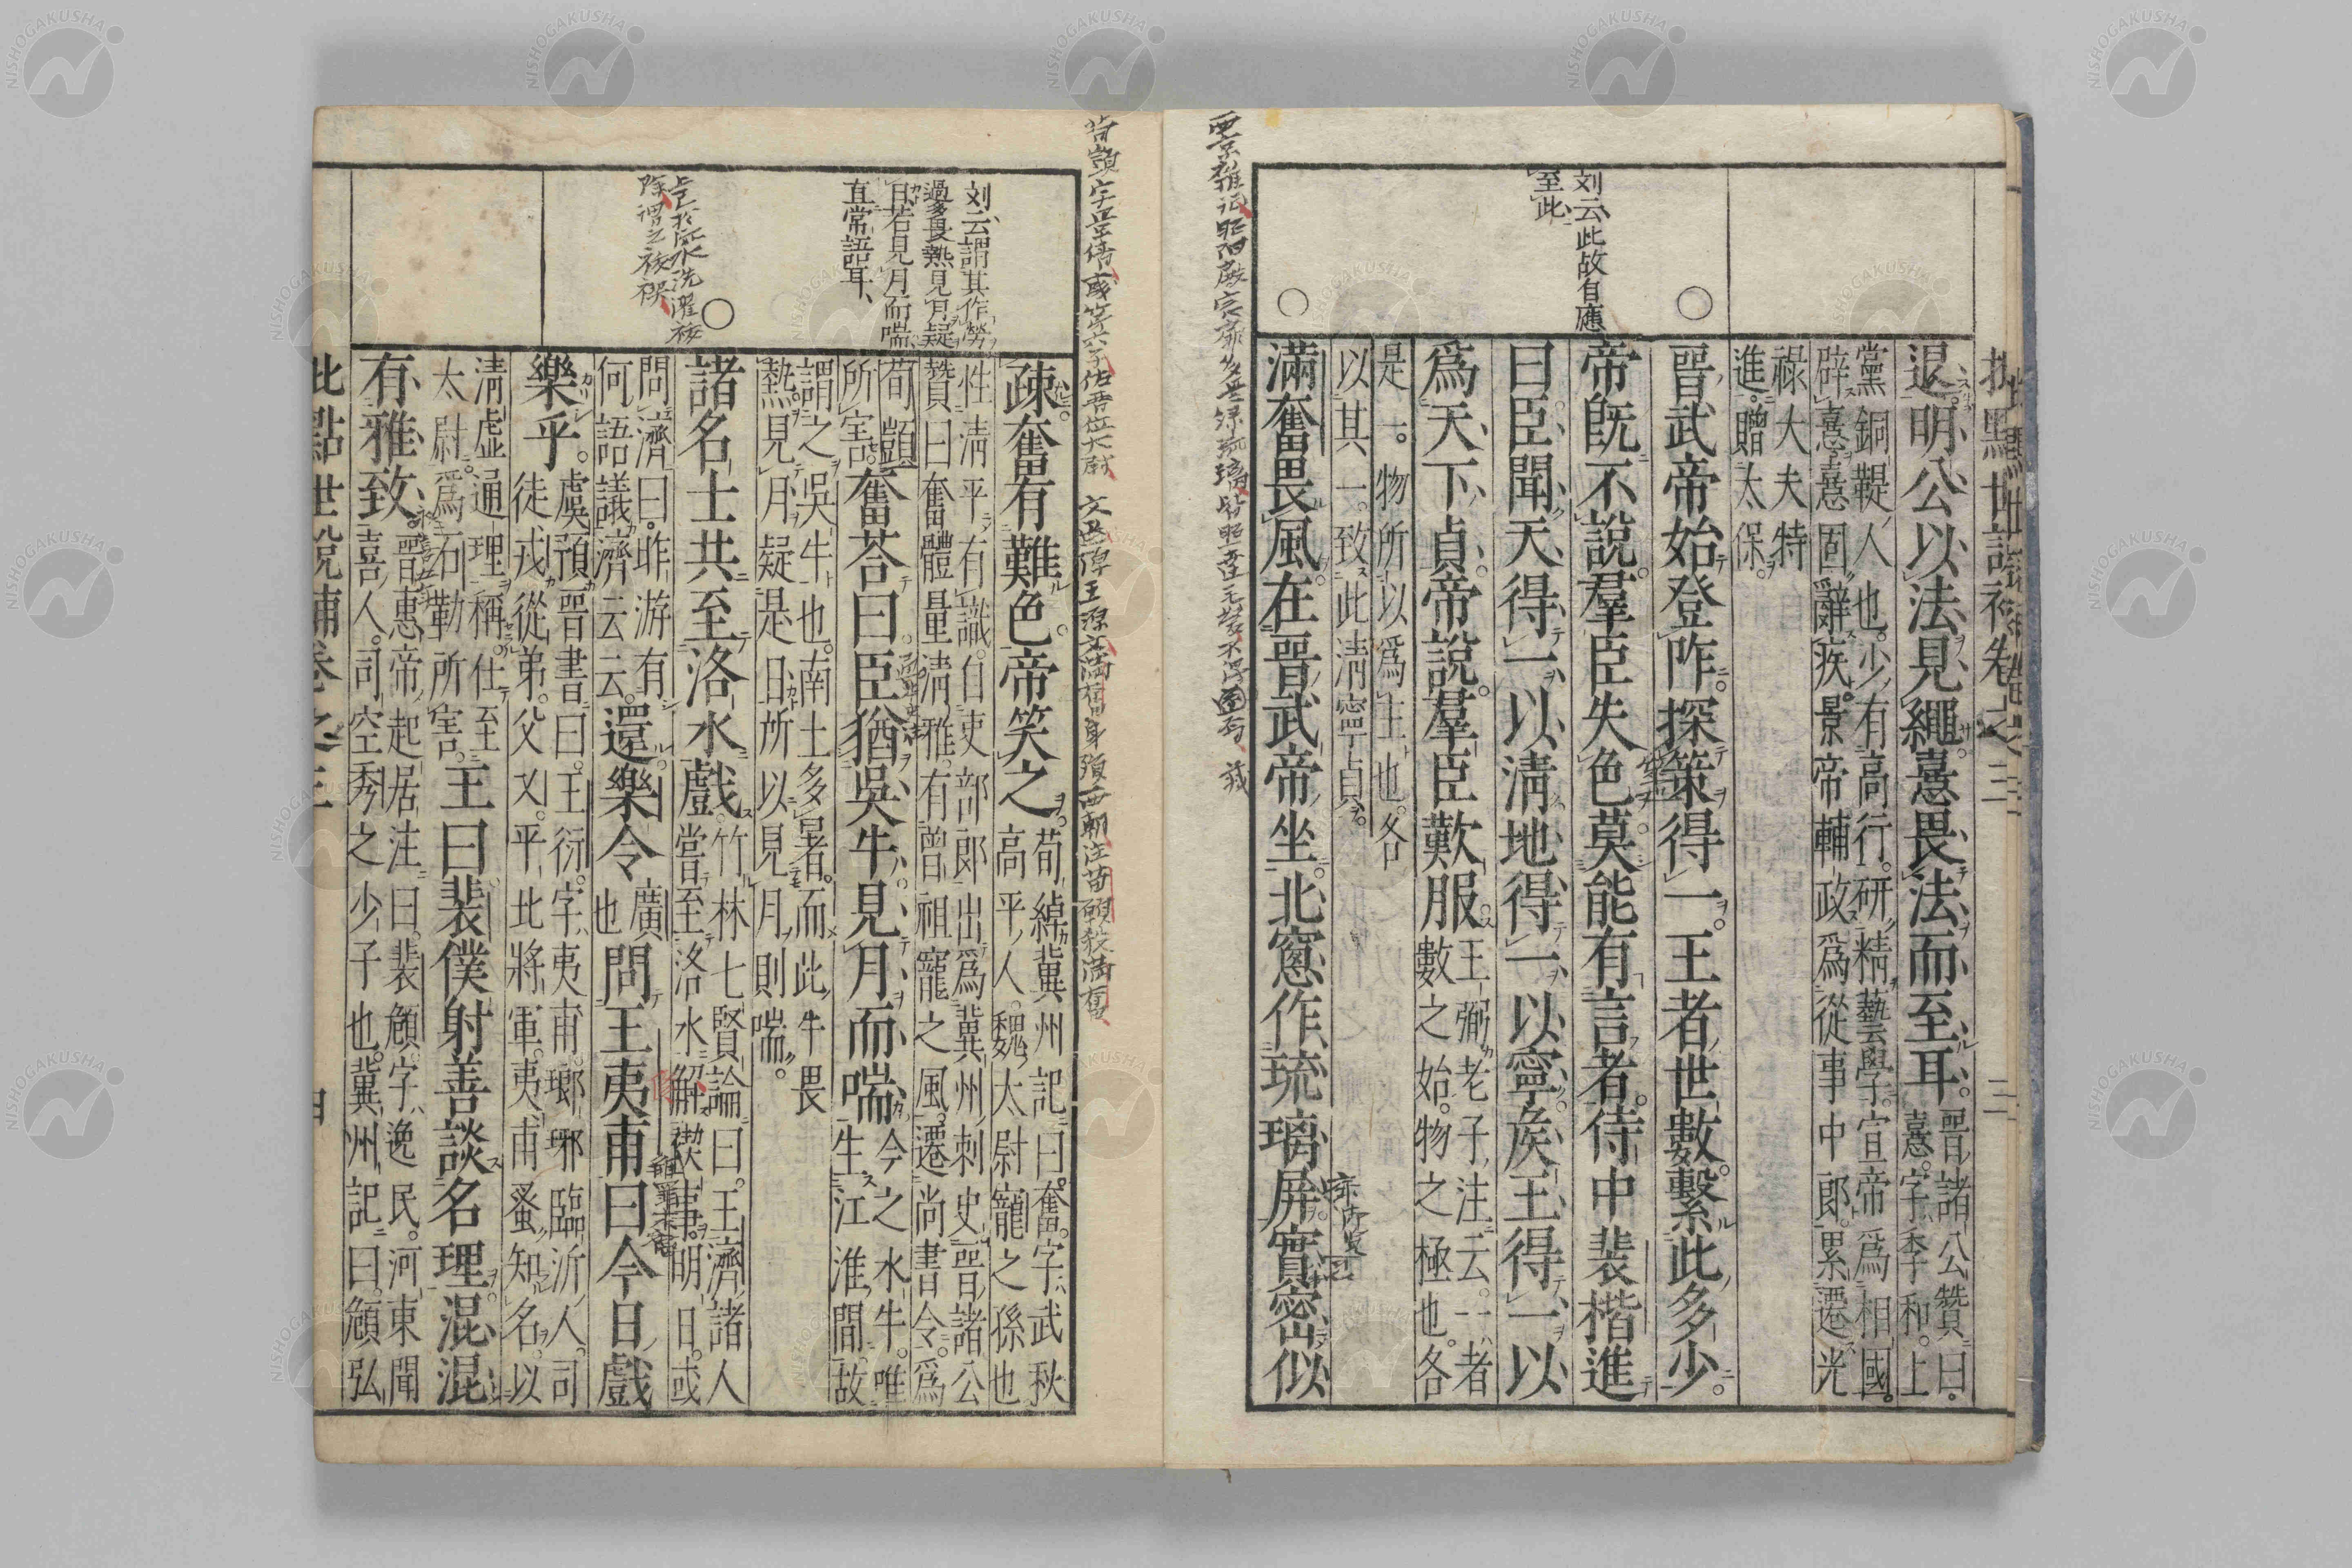 刘云此故有應
至此
退明公以法見繩憙畏法而至耳。晉諸公贊曰。
憙字季和。上
黨銅鞮人也。少有高行。研精藝學。宣帝爲相國。
辟憙。憙固辭疾。景帝輔政爲從事中郎。累遷光
祿大夫特
進。贈太保。
晉武帝始登阼。探策得一。王者世數。繫此多少。
帝旣不說。羣臣失色。莫能有言者。侍中裴楷進
曰。臣聞天得一以淸。地得一以寧。矦王得一以
爲天下貞。帝說。羣臣歎服。王弼老子注云。一者
數之始。物之極也。各
是一。物所以爲主也。各
以其一。致此淸寧貞。
滿奮畏風。在晉武帝坐。北窻作琉璃屏。實密似
刘云謂其作勞
過多畏熱見月疑
日若見月而喘
直常語耳、
疎。奮有難色。帝笑之。荀綽冀州記曰。奮字武秋
高平人。魏太尉寵之孫也
性淸平有識。自吏部郎出爲冀州刺史。晉諸公
贊曰。奮體量淸雅。有曾祖寵之風。遷尚書令。爲
荀顗
所害。
奮荅曰。臣猶吳牛。見月而喘。今之水牛。唯
生江淮間。故
謂之吳牛也。南土多暑。而此牛畏
熱。見月疑是日。所以見月則喘。
諸名士共至洛水戲。竹林七賢論曰。王濟諸人
嘗至洛水解禊事。明日。或
問濟曰。昨游有
何語議。濟云云。
還。樂令廣
也
問王夷甫曰。今日戲
樂乎。虞預晉書曰。王衍。字夷甫。瑯琊臨沂人。司
徒戎從弟。父乂。平北將軍。夷甫蚤知名。以
淸虛通理稱。仕至
太尉。爲石勒所害。
王曰。裴僕射善談名理。混混
有雅致。晉惠帝起居注曰。裴頠字逸民。河東聞
喜人。司空秀之少子也。冀州記曰。頠弘